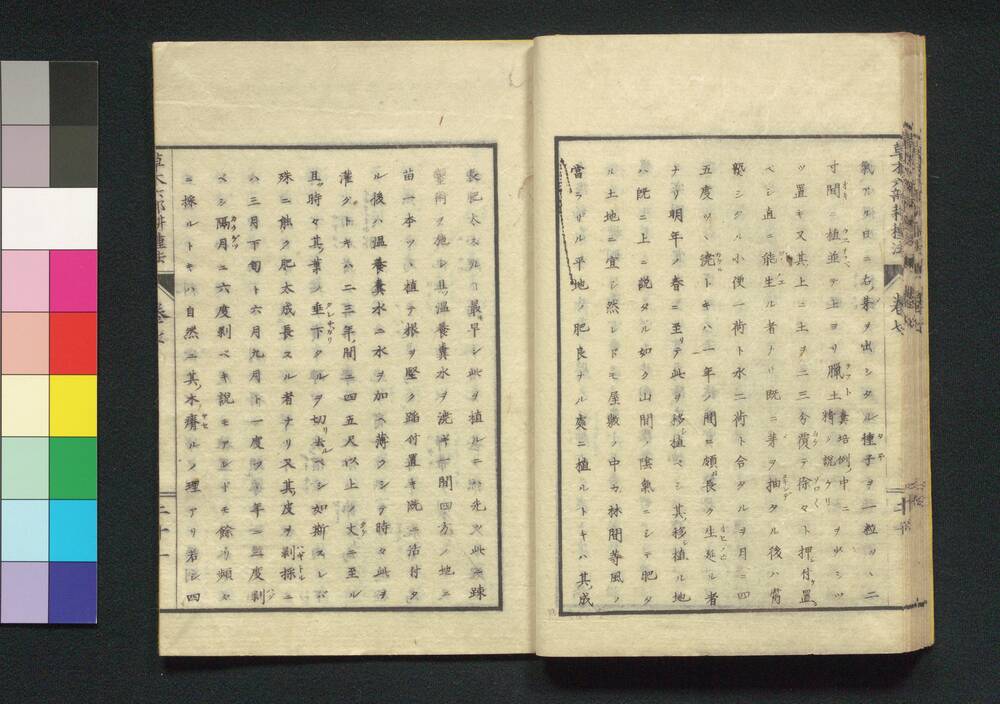 草木六部耕種法 卷七
氣アル日ニ右芽ヲ出シタル種子ヲ一粒ツヽ二
寸間ニ植並テ上ヨリ臘土糞培例中ニ精ク說ケリヲ少シツ
ツ置キ又其上ニ土ヲ二三分覆テ徐々ト押付置
ベシ直ニ能生ル者ナリ既ニ芽ヲ抽タル後ハ當
堅シタル小便一荷ト水二荷ト合タルヲ月ニ四
五度ツヽ澆トキハ一年ノ間ニ頗長ク生延ル者
ナリ明年ノ春ニ至リテ此ヲ移植ベシ其移植ル地
ハ既ニ上ニ說タル如ク山間ノ陰氣ニシテ肥タ
ル土地ニ宜シ然レドモ屋敷ノ中カ林間等風ノ
當ラザル平地ノ肥良ナル處ニ植ルトキハ其成
長肥太スルヿ最早シ此ヲ植ルニハ先ツ此ニ踈
鑿術ヲ施シ且ツ溫養糞水ヲ澆ギ一間四方ノ地ニ
苗一本ツヽ植テ根ヲ堅ク踏付置キ既ニ活付タ
ル後ハ溫養糞水ニ水ヲ加ヘ薄クシテ時々此ヲ
灌クトキハ二三年ノ間ニ四五尺以上ノ丈ニ至ル
且ツ時々其葉ノ垂下タルヲ切去ベシ如斯スレバ
殊ニ能ク肥太成長スル者ナリ又其皮ヲ剥採ニ
ハ三月下旬ト六月九月ト一度ツヽ年ニ三度剥
ベシ隔月ニ六度剥ベキ說モアレドモ餘リ頻々
ニ採ルトキハ自然ニ其木瘠ルノ理アリ若シ四
草木六部耕種法 卷七 二十一